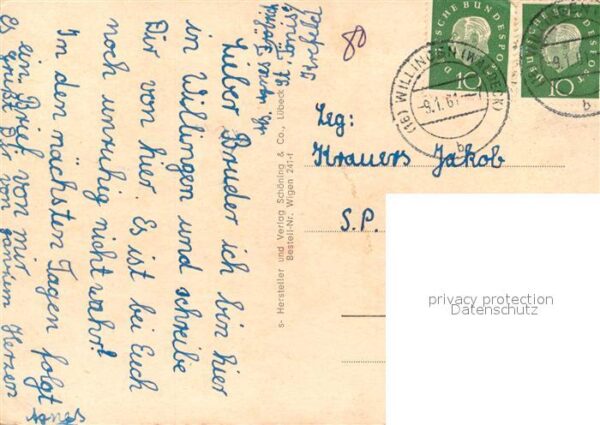 Lieber Bruder ich bin hier
in Willingen und schreibe
Dir von hier. Es ist bei Euch
noch unruhig nicht wahr!
In den nächsten Tagen folgt
ein Brief von mir
Es grüßt Dir von ganzem Herzen
s- Hersteller und Verlag Schöning & Co., Lübeck
Bestell-Nr. Wigen 241-f
80
DEUTSCHE BUNDESPOST
10
DEUTSCHE BUNDESPOST
10
(16) WILLINGEN (WALDECK)
-9.1.61
b
b
Leg:
Krauers Jakob
S.P.
privacy protection
Datenschutz